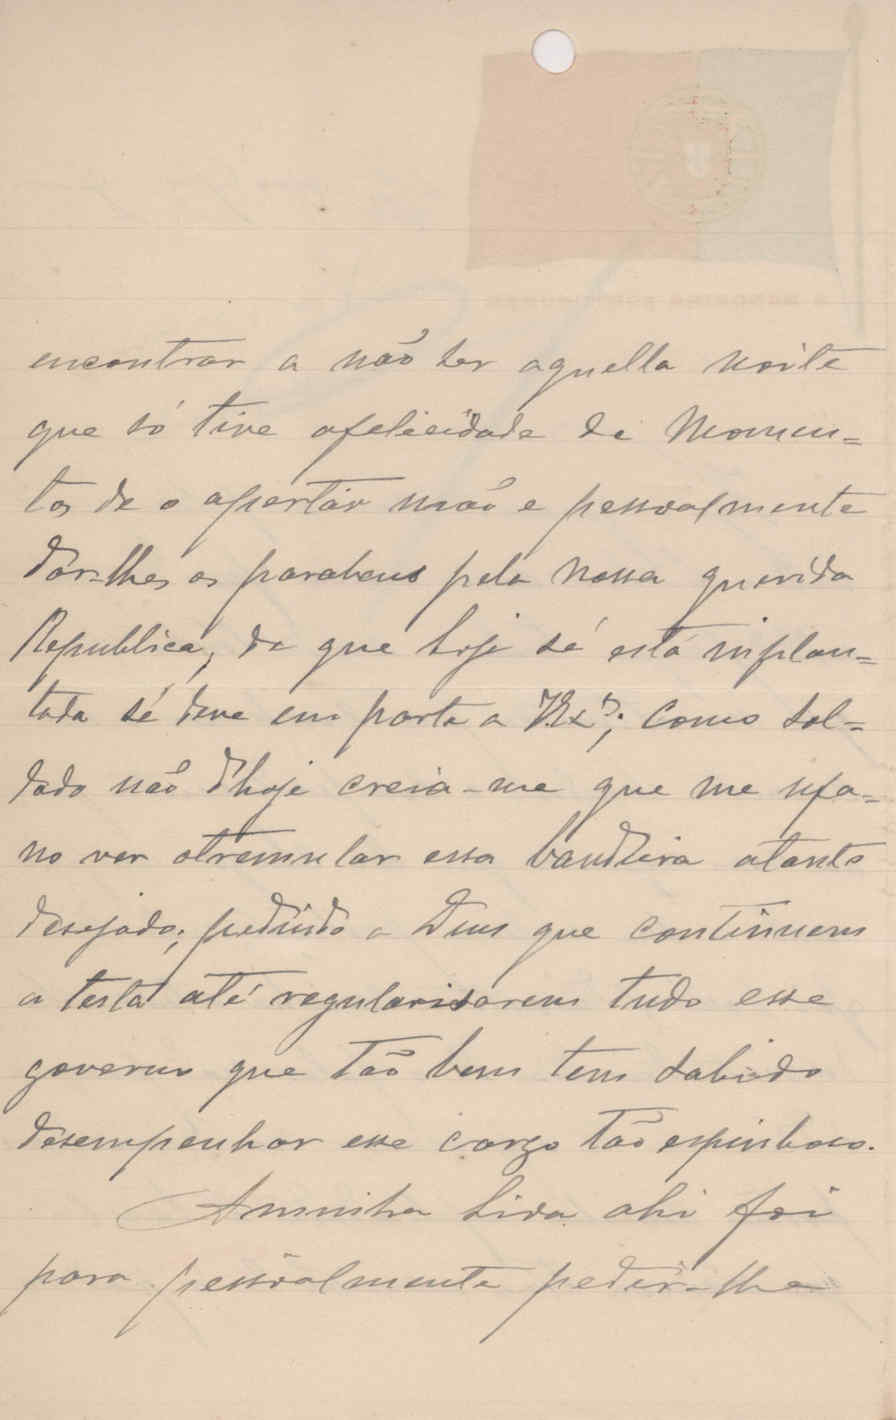 encontrar a não ser aquella noite
que só tive afelicidade de momen=
tos de o apertár mão e pessoalmente
dár-lhes os parabens pela nossa querida
Republica, da que hoje sé está inplan=
tada sé deve em parte a V.Exª; como sol=
dado não d'hoje creia-me que me ufa=
no ver otremular essa bandeira atanto
desejada; pedindo a Deus que continuem
a testa até regularisarem tudo esse
governo que tão bem tem sabido
desempenhar esse cargo tão espinhoso.
Aminha hida ahi foi
para pessoalmente pedir-lhe